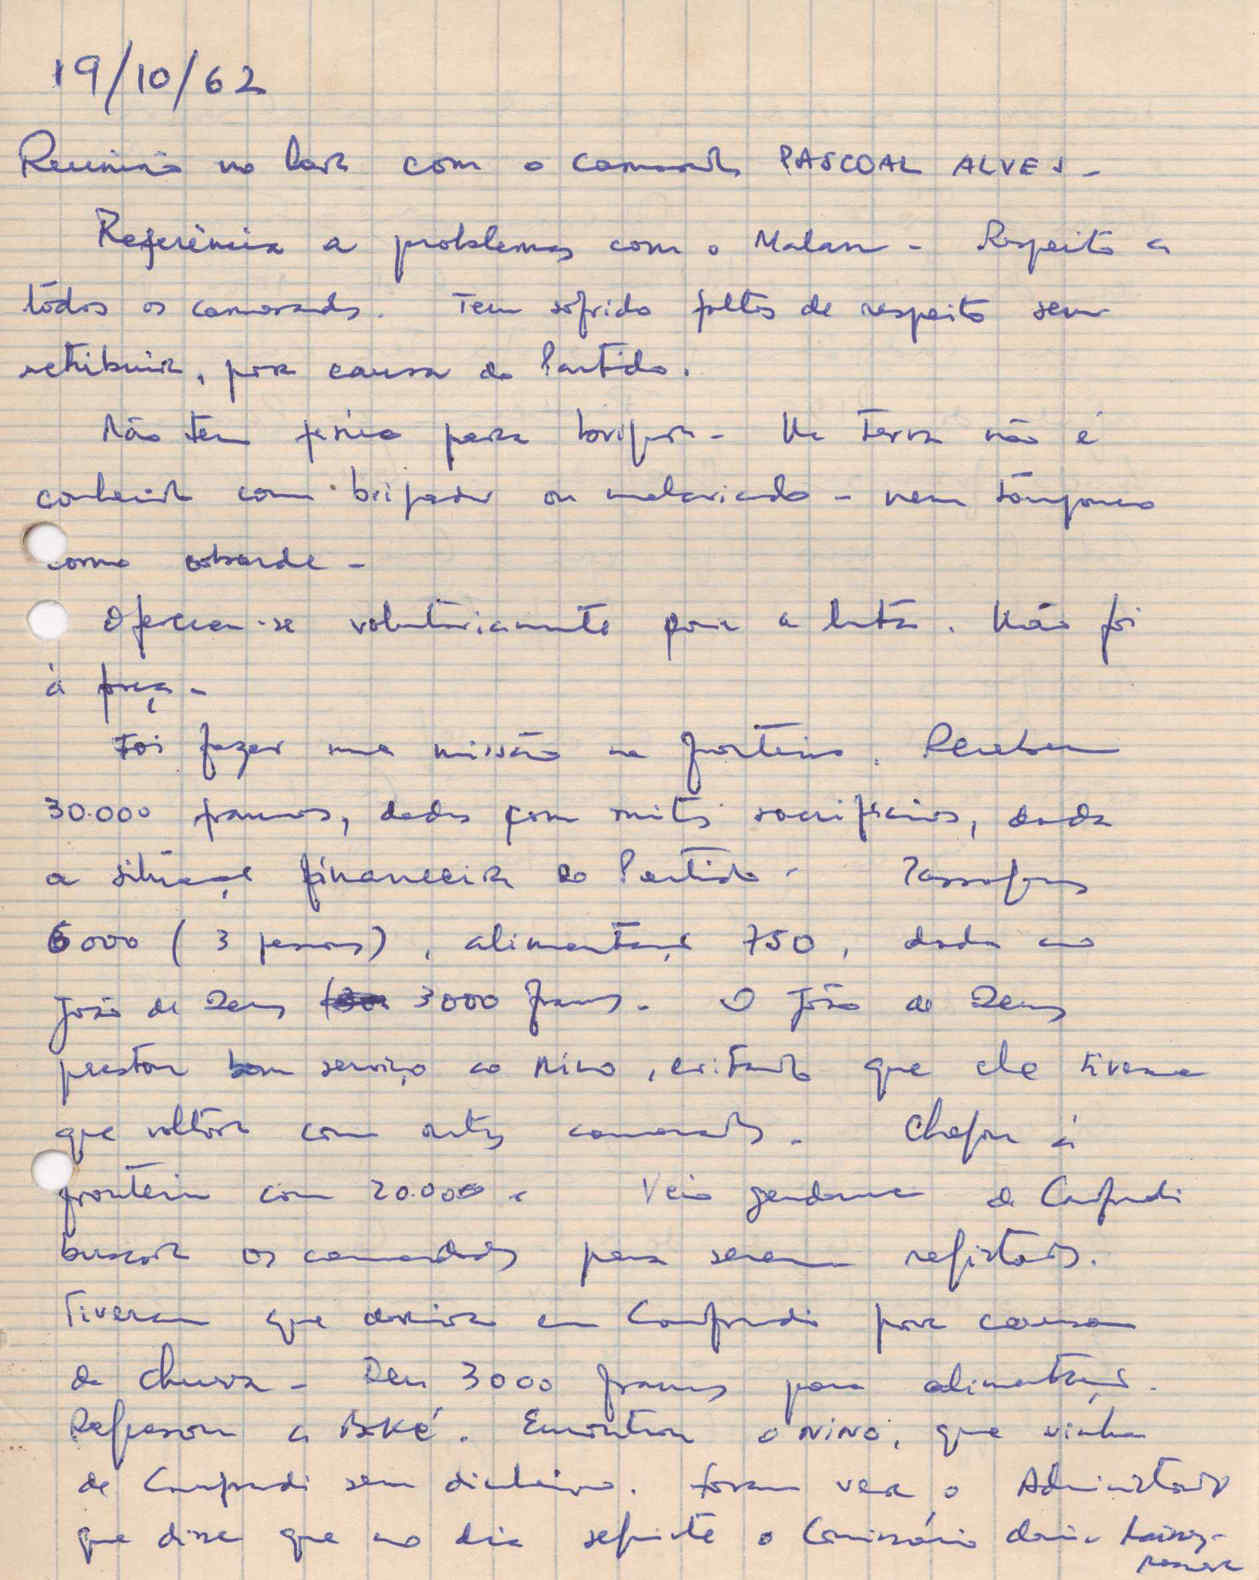 19/10/62
Reunião no Lar com o camarada PASCOAL ALVES -
Referência a problemas com o Malan - Respeito a
tôdos os camaradas. Tem sofrido faltas de respeito sem
retribuir, por causa do Partido.
Não tem feitio para Na Terra não é
conhecido como brigador ou malcriado - nem tampouco
como cobarde -
Ofereceu-se voluntàriamente para a luta. Não foi
à força -
Foi fazer uma missão na fronteira. Recebeu
30.000 francos, dados com muitos sacrifícios, dada
a situação financeira do Partido - Passagens
6000 (3 pessoas), alimentação 750, dada ao
João de Deus 3000 francos. O João de Deus
prestou bom serviço ao Nino, evitando que ele tivesse
que voltar com outros camaradas. Chegou à
fronteira com 20.000. Veio gendarme de
buscar os camaradas para serem registados.
Tiveram que dormir em por causa
da chuva - Deu 3000 francos para alimentação.
Regressou a BKÉ. Encontrou o NINO, que vinha
de sem dinheiro. Foram ver o Administrador
que disse que no dia seguinte o Comissário daria laissez-
passer